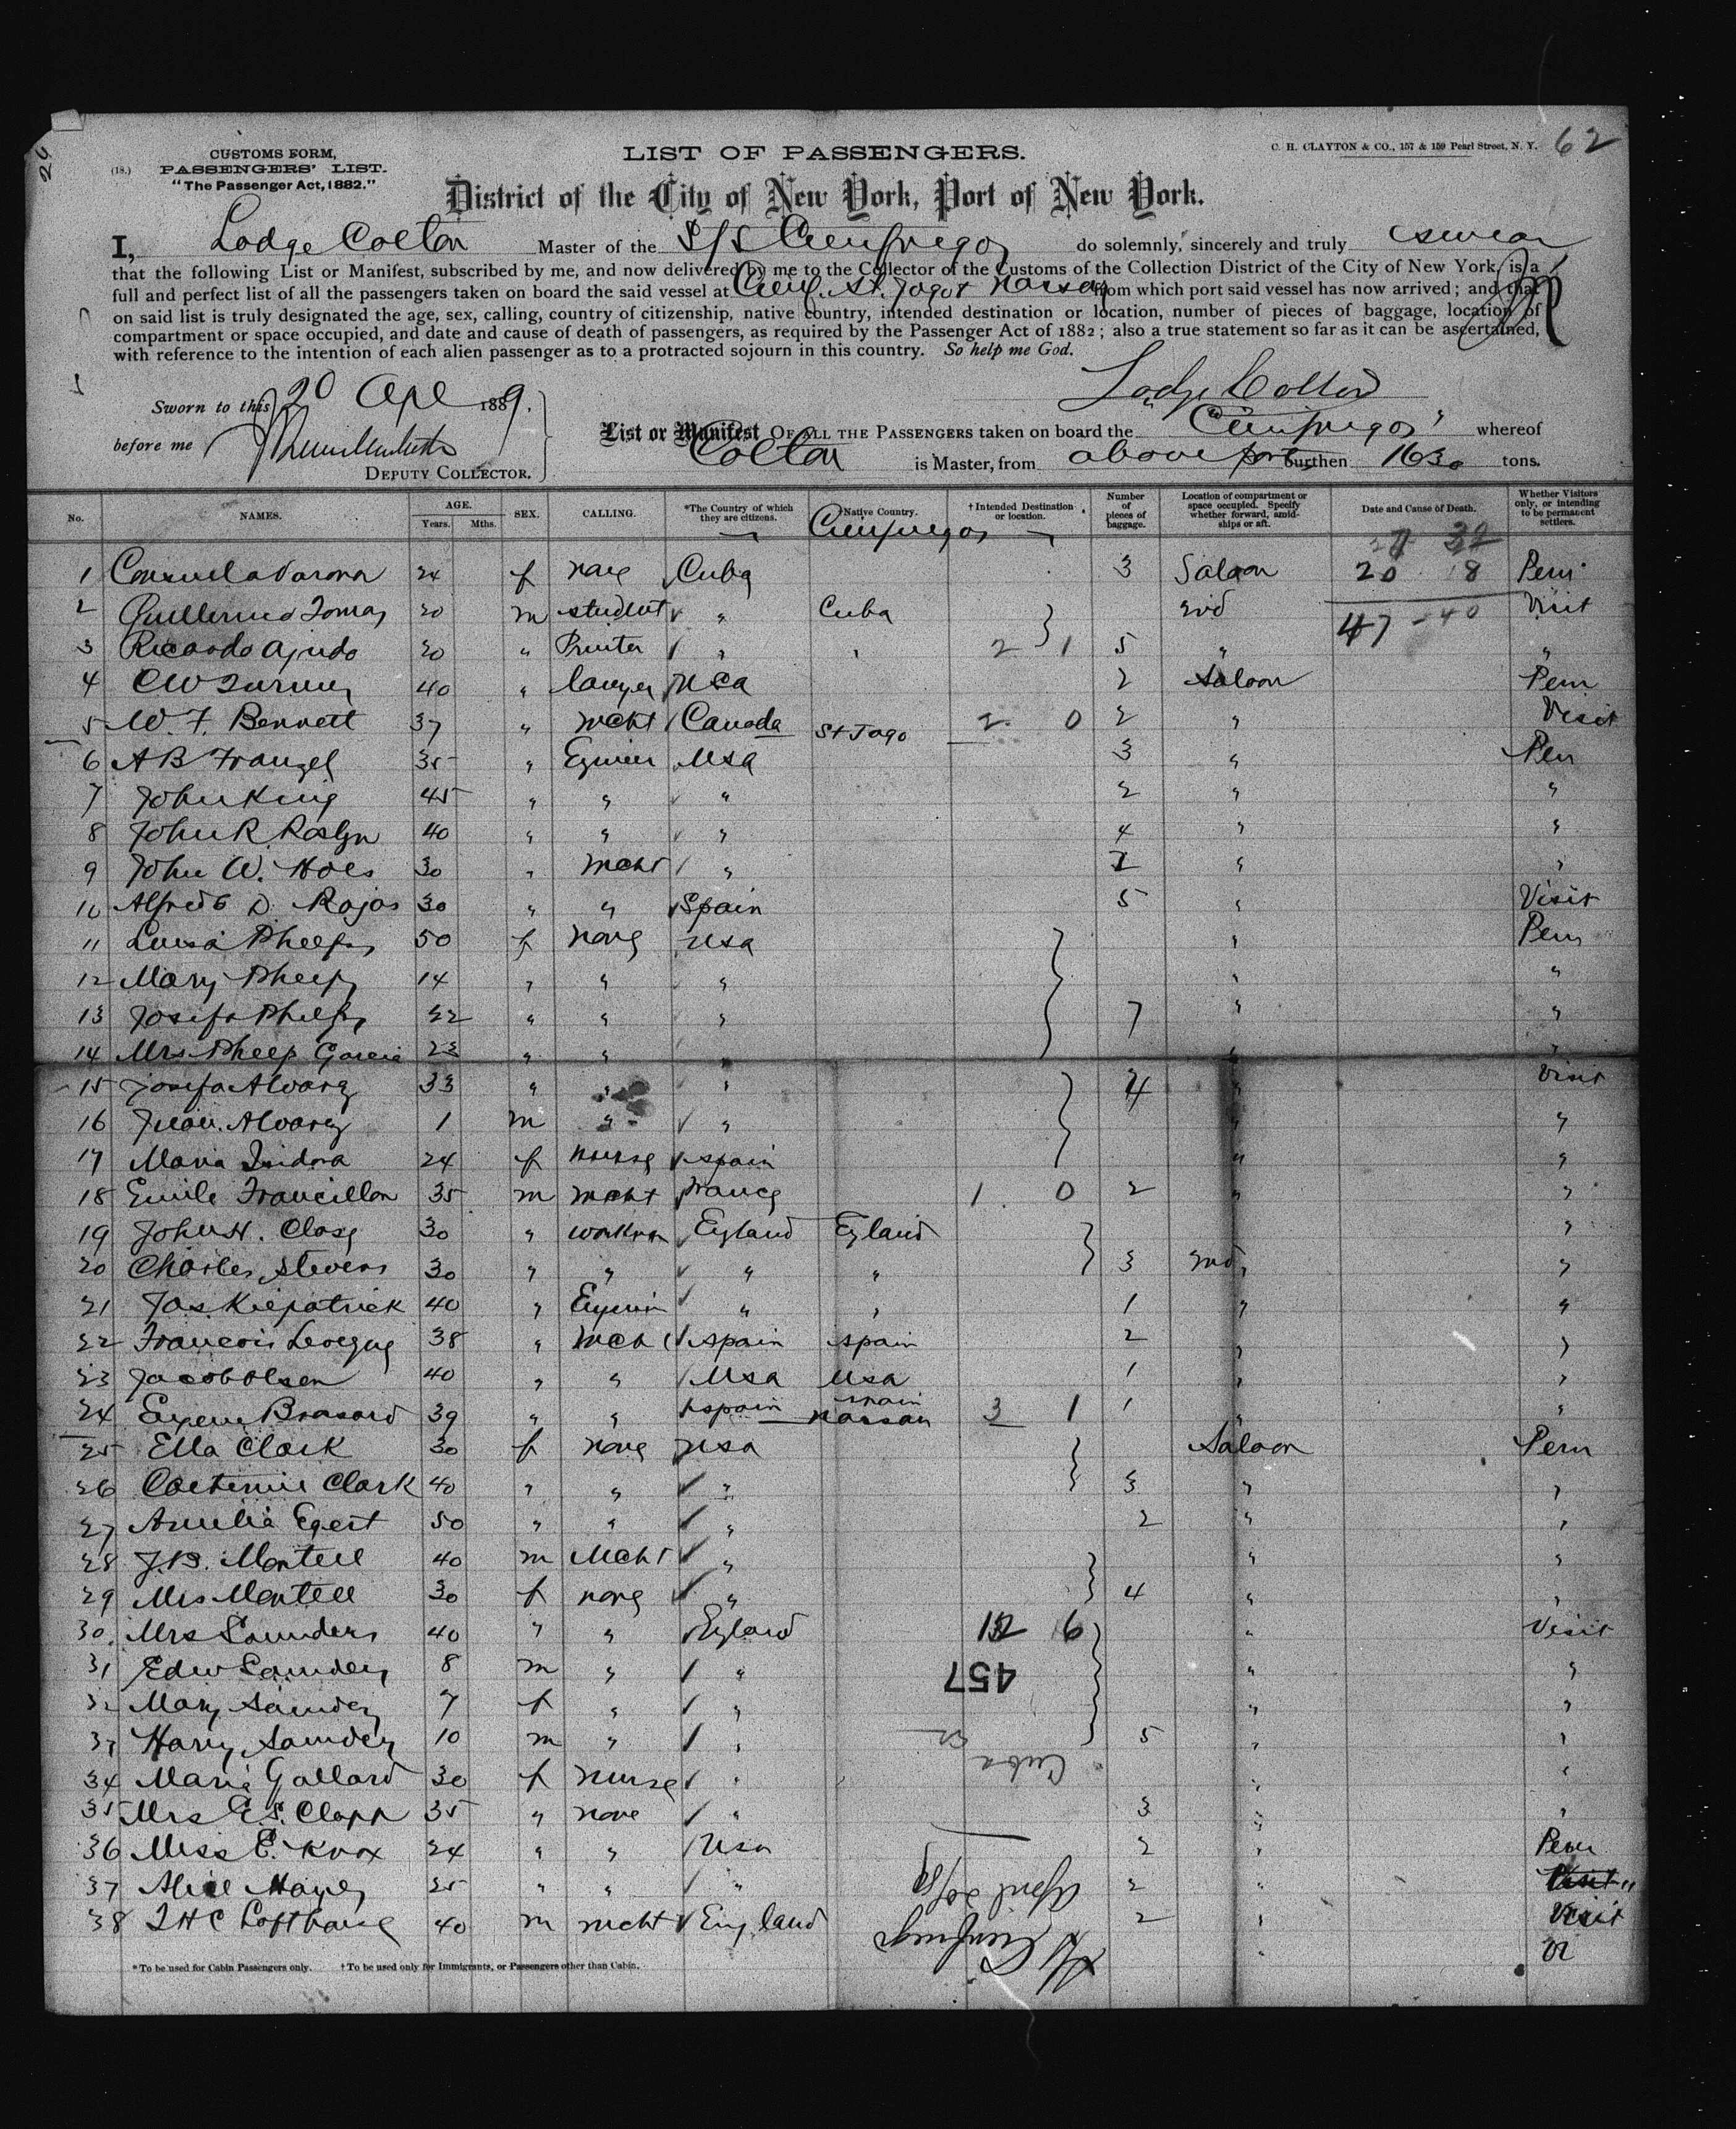 62
24
(18.)
CUSTOMS FORM,
PASSENGERS' LIST.
"The Passenger Act, 1882."
LIST OF PASSENGERS.
C. H. CLAYTON & CO., 157 & 159 Pearl Street, N. Y.
District of the City of New York, Port of New York.
I, Lodge Colton Master of the S/S Cienfuegos do solemnly, sincerely and truly swear
that the following List or Manifest, subscribed by me, and now delivered by me to the Collector of the Customs of the Collection District of the City of New York, is a
full and perfect list of all the passengers taken on board the said vessel at Cienf. St. Jago & Nassau from which port said vessel has now arrived; and that
on said list is truly designated the age, sex, calling, country of citizenship, native country, intended destination or location, number of pieces of baggage, location of
compartment or space occupied, and date and cause of death of passengers, as required by the Passenger Act of 1882; also a true statement so far as it can be ascertained,
with reference to the intention of each alien passenger as to a protracted sojourn in this country. So help me God.
Sworn to this 20 Apl 1889.
Lodge Colton
before me
DEPUTY COLLECTOR.
List or Manifest OF ALL THE PASSENGERS taken on board the "Cienfuegos" whereof
Colton is Master, from above ports burthen 1630 tons.
No. NAMES. AGE. Years. Mths. SEX. CALLING. *The Country of which they are citizens. †Native Country. †Intended Destination or location. Number of pieces of baggage. Location of compartment or space occupied. Specify whether forward, amidships or aft. Date and Cause of Death. Whether Visitors only, or intending to be permanent settlers.
Cienfuegos
1 Consuela Varona 24 f none Cuba 3 Saloon 20 18 Perm
2 Guillermo Tomas 20 m student " Cuba 2nd 47 - 40 Visit
3 Ricardo Ajudo 20 " Printer " " 2 1 5 " "
4 CW Turner 40 " lawyer USA 2 Saloon Perm
5 W. F. Bennett 37 " mcht Canada 2 0 2 " Visit
St Jago
6 A B Franzel 35 " Enginer USA 3 " Perm
7 John King 45 " " " 2 " "
8 John R. Roslyn 40 " " " 4 " "
9 John W. Hoes 30 " mcht " 2 " "
10 Alfredo D. Rojas 30 " " Spain 5 " Visit
11 Luisa Phelps 50 f none USA " Perm
12 Mary Phelps 14 " " " " "
13 Josefa Phelps 22 " " " 7 " "
14 Mrs Phelps Garcia 23 " " " " "
15 Josefa Alvarez 33 " " " 4 " Visit
16 Juan Alvarez 1 m " " " "
17 Maria Isidora 24 f nurse Spain " "
18 Emile Francillon 35 m mcht France 1 0 2 " "
19 John H. Close 30 " workman England England "
20 Charles Stevens 30 " " " " 3 2nd "
21 Jas Kirkpatrick 40 " Enginer " " 1 " "
22 Francois 38 " mcht Spain Spain 2 " "
23 Jacob Olsen 40 " " USA USA 1 " "
24 Eugene Brasard 39 " " Spain Spain 3 1 1 " "
Nassau
25 Ella Clark 30 f none USA Saloon Perm
26 Catherine Clark 40 " " " 3 " "
27 Amelia Egert 50 " " " 2 " "
28 J.B. Mantell 40 m Mcht " " "
29 Mrs Mantell 30 f none " 4 " "
30. Mrs Saunders 40 " " England 12 6 " Visit
31 Edw Saunders 8 m " " " "
32 Mary Saunders 7 f " " " "
33 Harry Saunders 10 m " " 5 " "
34 Maria Gallard 30 f nurse " " "
35 Mrs E. S. Clapp 35 " none " 3 " "
36 Miss E. Knox 24 " " USA 2 " Perm
37 Alice Mayes 25 " " " 2 " Visit "
38 T H C Lofthouse 40 m mcht England 2 " Visit
457
Cuba
April 20/89
Cienfuegos
*To be used for Cabin Passengers only. †To be used only for Immigrants, or Passengers other than Cabin.